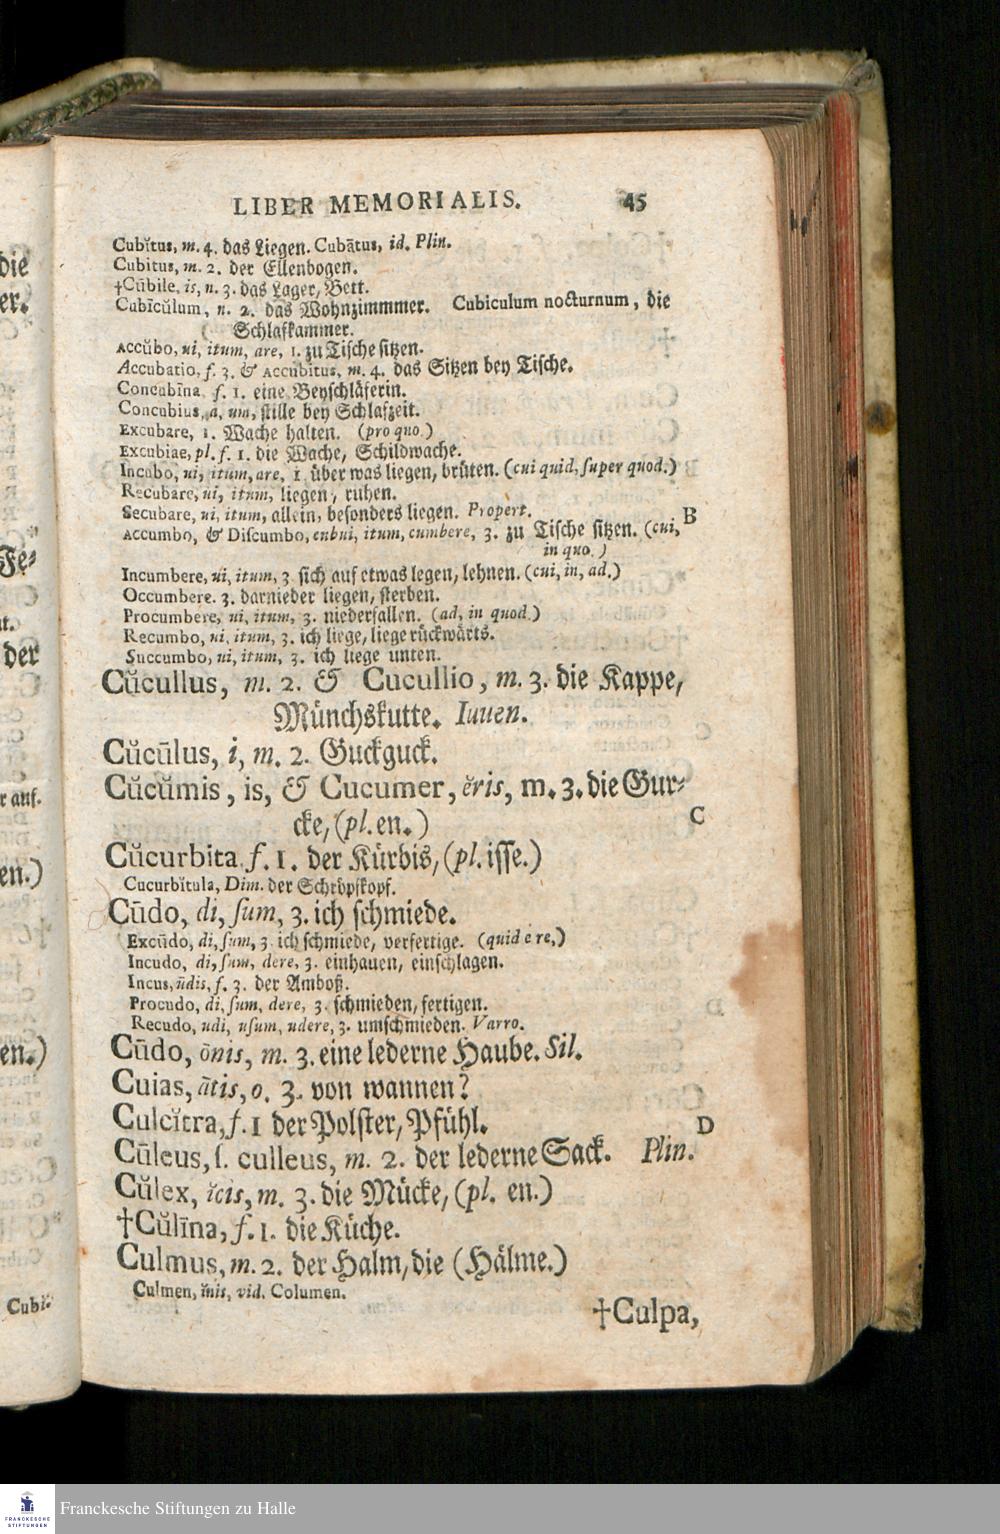 LIBER MEMORIALIS. 45
Cubĭtus, m. 4. das Liegen. Cubātus, id. Plin.
Cubitus, m. 2. der Ellenbogen.
†Cūbile, is, n. 3. das Lager, Bett.
Cubīcŭlum, n. 2. das Wohnzimmmer. Cubiculum nocturnum, die
Schlafkammer.
Accŭbo, ui, itum, are, 1. zu Tische sitzen.
Accubatio, f. 3. & Accubĭtus, m. 4. das Sitzen bey Tische.
Concubīna f. 1. eine Beyschläferin.
Concubius, a, um, stille bey Schlafzeit.
Excubare, 1. Wache halten. (pro quo.)
Excubiae, pl. f. 1. die Wache, Schildwache.
Incubo, ui, itum, are, 1 über was liegen, brüten. (cui quid, super quod.)
Recubare, ui, itum, liegen, ruhen.
Secubare, ui, itum, allein, besonders liegen. Propert. B
Accumbo, & Discumbo, cubui, itum, cumbere, 3. zu Tische sitzen. (cui,
in quo.)
Incumbere, ui, itum, 3 sich auf etwas legen, lehnen. (cui, in, ad.)
Occumbere. 3. darnieder liegen, sterben.
Procumbere, ui, itum, 3. niederfallen. (ad, in quod.)
Recumbo, ui, itum, 3. ich liege, liege rückwärts.
Succumbo, ui, itum, 3. ich liege unten.
Cŭcullus, m. 2. & Cucullio, m. 3. die Kappe,
Münchskutte. Iuuen.
Cŭcūlus, i, m. 2. Guckguck.
Cŭcŭmis, is, & Cucumer, ĕris, m. 3. die Gur-
cke, (pl. en.) C
Cŭcurbita f. 1. der Kürbis, (pl. isse.)
Cucurbĭtula, Dim. der Schröpfkopf.
Cūdo, di, sum, 3. ich schmiede.
Excūdo, di, sum, 3 ich schmiede, verfertige. (quid e re,)
Incudo, di, sum, dere, 3. einhauen, einschlagen.
Incus, ūdis, f. 3. der Amboß.
Procudo, di, sum, dere, 3. schmieden, fertigen.
Recudo, udi, usum, udere, 3. umschmieden. Varro.
Cūdo, ōnis, m. 3. eine lederne Haube. Sil.
Cuias, ātis, o. 3. von wannen?
Culcĭtra, f. 1 der Polster, Pfühl. D
Cūleus, s. culleus, m. 2. der lederne Sack. Plin.
Cŭlex, ĭcis, m. 3. die Mücke, (pl. en.)
†Cŭlīna, f. 1. die Küche.
Culmus, m. 2. der Halm, die (Hälme.)
Culmen, ĭnis, vid. Columen.
†Culpa,
die
er.
Fe-
nt.
der
r auf.
en.)
en.)
Cubi-
Franckesche Stiftungen zu Halle
FRANCKESCHE
STIFTUNGEN